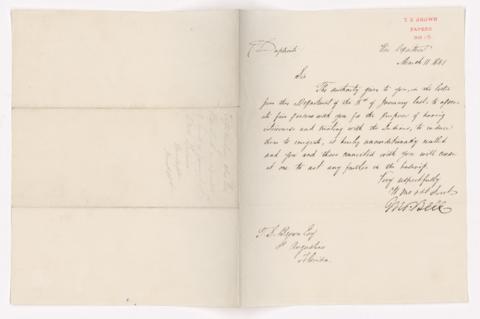 T. S. BROWN
PAPERS
Duplicate
War Department
March 11. 1841
Sir
The authority given to you, in the letter
from this Department of the of January last, to associate
five persons with you for the purpose of having
interviews and treating with the Indians, to induce
them to emigrate, is hereby unconditionally revoked
and you and those connected with you will cease
at once to act any further in the
Very respectfully
Yr Most obt Servt
Jno. Bell
T. S. Brown Esq
St Augustine
Florida